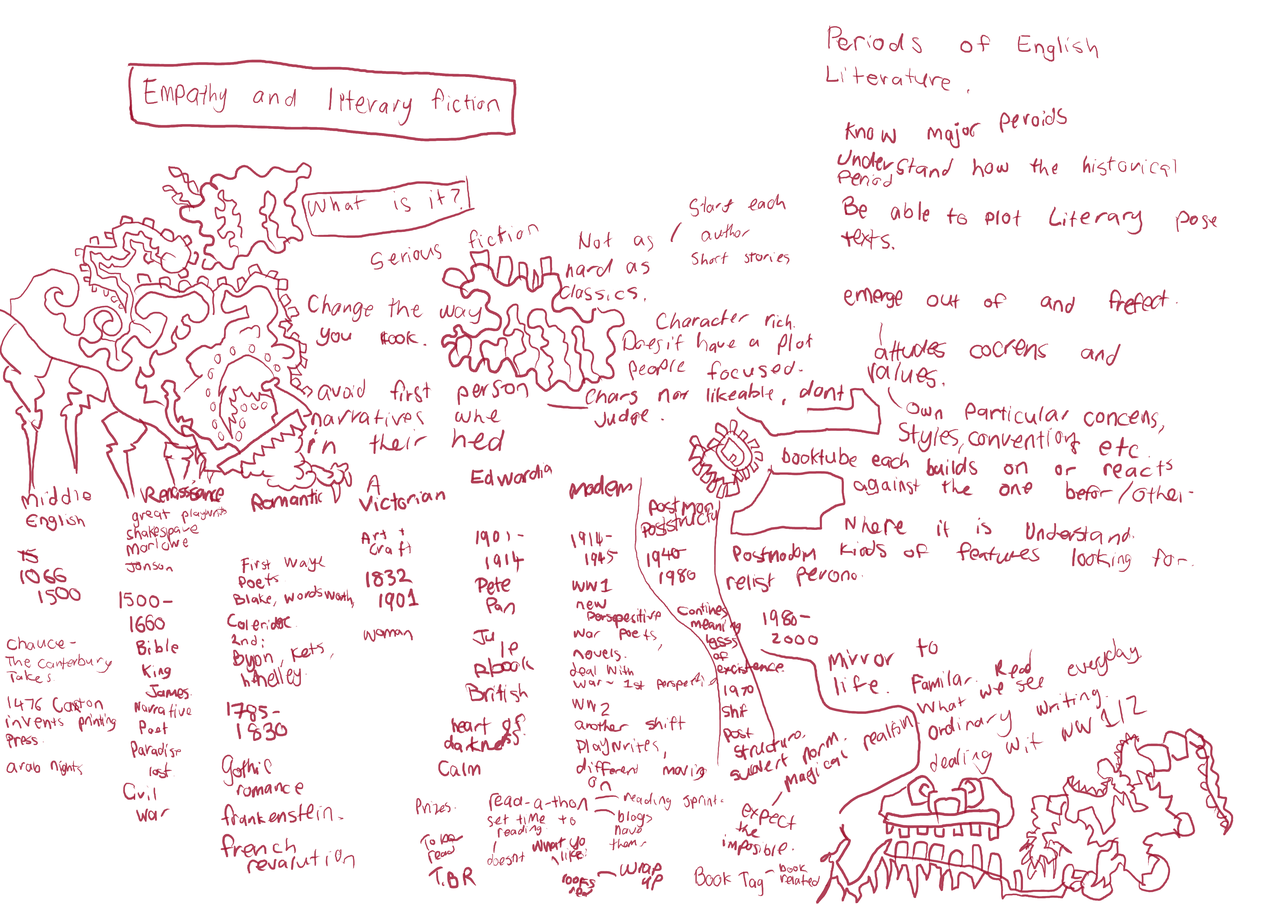 Empathy and literary fiction
What is it?
Serious fiction
Not as
hard as
Classics.
Start each
author
Short stories
Change the way
you
Character rich.
have a plot
people focused.
avoid first person
narratives whe
in their hed
Chars not likeable, dont
Judge.
Periods of English
Literature.
Know major peroids
Understand how the historical
Period
Be able to plot Literary pose
texts.
emerge out of and
and
values.
Own particular concens,
Styles, convention, etc.
booktube each builds on or reacts
against the one befor/other-
Where it is Understand.
Postmodom kinds of features looking for.
relist
Middle
English
1066
1500
Chauce-
The Canterbury
Takes.
1476 Caxton
invents printing
Press.
arab nights
Renassance
great playwrits
shakespave
Marlowe
Jonson
1500-
1660
Bible
King
James
Narrative
Poet
Paradise
lost
Civil
War
Romantic
First wave
Poets
Blake, Wordsworth,
Coleridge
2nd:
Byon, Kets,
1785-
1830
Gothic
romance
frankenstein.
french
revalution
A
Victorian
Art +
Craft
1832
1901
woman
Edwardia
1901-
1914
Pete
Pan
Ju
le
British
heart of
darkness
Calm
Modem
1914-
1945
WW1
new
Perspesitive
War Poets,
novels.
deal with
War~ 1st
WW2
another shift
Playwrites,
different moving
on
Postmon
Poststructu
1940-
1980
Contines
meaning
lgsss
of
excistence
1970
Shf
Post
structuro.
norm.
magical realism
expect
the
imposible.
1980-
2000
Mirror to
life. Familar. Read
what we see everyday
ordinary writing.
dealing wit WW 1/2
Prizes.
To be
read
T.B.R
read-a-thon
set time to
reading
doesnt
reading sprint.
blogs
have
them.
What yo
like.
Wrap
up
Book Tag - book
related